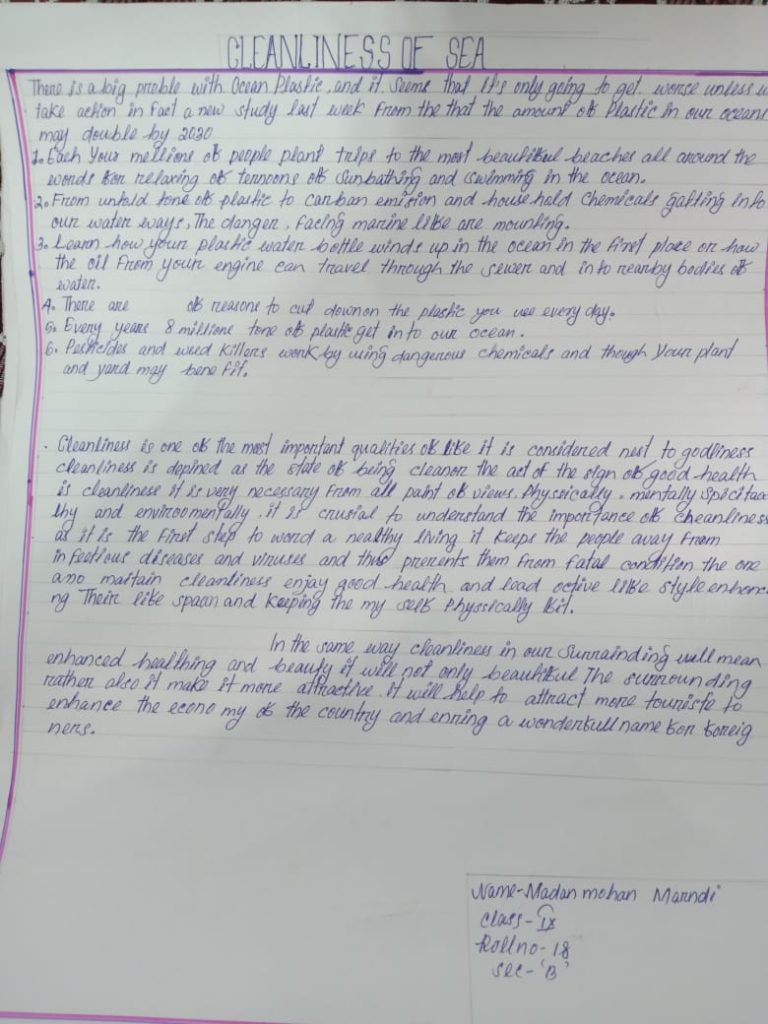 CLEANLINESS OF SEA
There is a big proble with Ocean Plastic, and it seems that It's only going to get worse unless w
take action in fact a new study last week From the that the amount of Plastic in our oceans
may double by 2030
1. Each Your mellions of people plant trips to the most beautiful beaches all around the
words for relaxing of ternoons of Sunbathing and swimming in the ocean.
2. From untold tone of plastic to carban emision and house held Chemicals gatting info
our water ways, The danger, facing marine like are mounting.
3. Learn how your plastic water bottle winds up in the ocean in the first place or how
the oil From your engine can travel through the sewer and into nearby bodies of
water.
4. There are of reasons to cut down on the plastic you use every day.
5. Every years 8 millions tone of plastic get in to our ocean.
6. Pesticides and weed killers work by using dangerous chemicals and though Your plant
and yard may bene fit.
. Cleanliness is one of the most important qualities of like it is considered nest to godliness
cleanliness is depined as the state of being cleanor the act of the sign of good health
is cleanliness it is very necessary From all paint of views. Physically, mentally Spicitua
lhy and enviroomentally, it is crusial to understand the importance of cheanliness
as it is the First step to word a nealthy living it keeps the people away From
infectious diseases and viruses and thus prerents them From fatal condition the one
ano martain cleanliness enjoy good health and lead octive like style enhanci
ng Their like spaan and Keeping the my self Physsically fit.
In the same way cleanliness in our Surrainding will mean
enhanced healthing and beauty it will not only beautiful The surrounding
rather also it make it more attractive. it will help to attract more touriste to
enhance the econo my of the country and enring a wonderfull name for foreig
ners.
Name-Madan mohan Marndi
class-IX
Roll no-18
sec-'B'